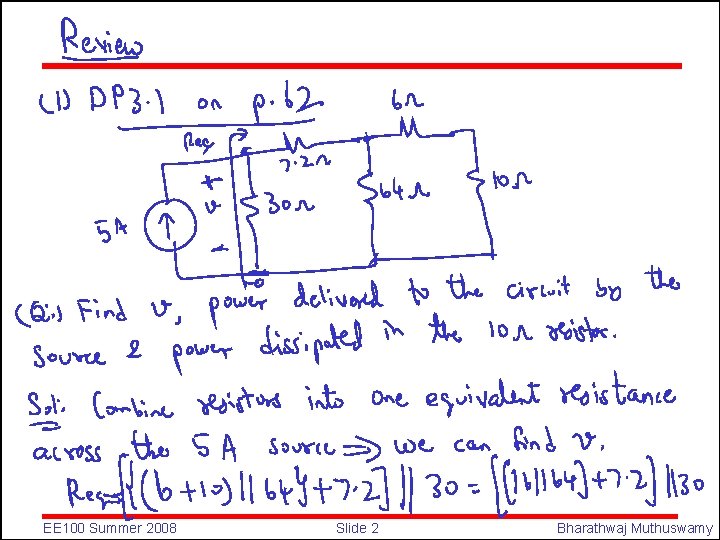 Review
(1) DP3.1 on p.62
6Ω
Req
7.2Ω
+
v
30Ω
64Ω
10Ω
5A
-
(Q:) Find v, power delivered to the circuit by the
source & power dissipated in the 10Ω resistor.
Sol: Combine resistors into one equivalent resistance
across the 5A source ⇒ we can find v.
Req=[[(6+10)||64]+7.2]||30 = [[16||64]+7.2]||30
EE100 Summer 2008
Slide 2
Bharathwaj Muthuswamy